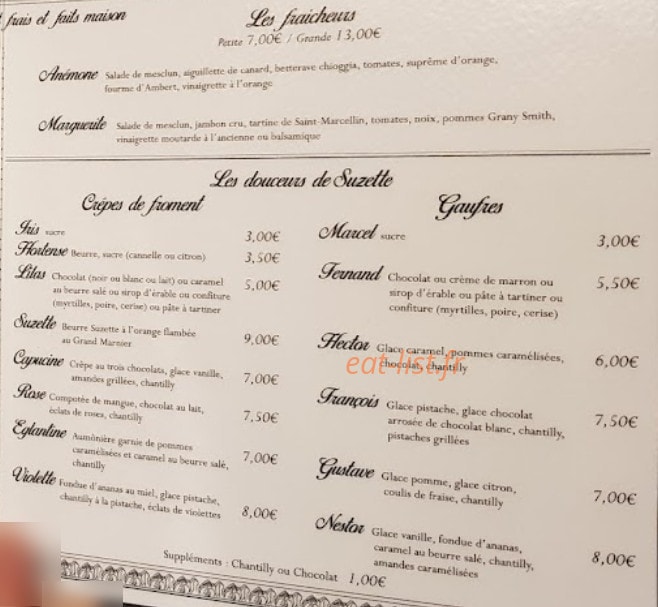 frais et faits maison
Les fraîcheurs
Petite 7,00€ / Grande 13,00€
Anémone Salade de mesclun, aiguillette de canard, betterave chioggia, tomates, suprême d'orange,
fourme d'Ambert, vinaigrette à l'orange
Marguerite Salade de mesclun, jambon cru, tartine de Saint-Marcellin, tomates, noix, pommes Grany Smith,
vinaigrette moutarde à l'ancienne ou balsamique
Les douceurs de Suzette
Crêpes de froment
Iris sucre 3,00€
Hortense Beurre, sucre (cannelle ou citron) 3,50€
Lilas Chocolat (noir ou blanc ou lait) ou caramel 5,00€
au beurre salé ou sirop d'érable ou confiture
(myrtilles, poire, cerise) ou pâte à tartiner
Suzette Beurre Suzette à l'orange flambée 9,00€
au Grand Marnier
Capucine Crêpe au trois chocolats, glace vanille, 7,00€
amandes grillées, chantilly
Rose Compotée de mangue, chocolat au lait, 7,50€
éclats de roses, chantilly
Eglantine Aumônière garnie de pommes 7,00€
caramélisées et caramel au beurre salé,
chantilly
Violette Fondue d'ananas au miel, glace pistache, 8,00€
chantilly à la pistache, éclats de violettes
Gaufres
Marcel sucre 3,00€
Fernand Chocolat ou crème de marron ou 5,50€
sirop d'érable ou pâte à tartiner ou
confiture (myrtilles, poire, cerise)
Hector Glace caramel, pommes caramélisées, 6,00€
chocolat, chantilly
eat-list.fr
François Glace pistache, glace chocolat 7,50€
arrosée de chocolat blanc, chantilly,
pistaches grillées
Gustave Glace pomme, glace citron, 7,00€
coulis de fraise, chantilly
Nestor Glace vanille, fondue d'ananas, 8,00€
caramel au beurre salé, chantilly,
amandes caramélisées
Suppléments : Chantilly ou Chocolat 1,00€